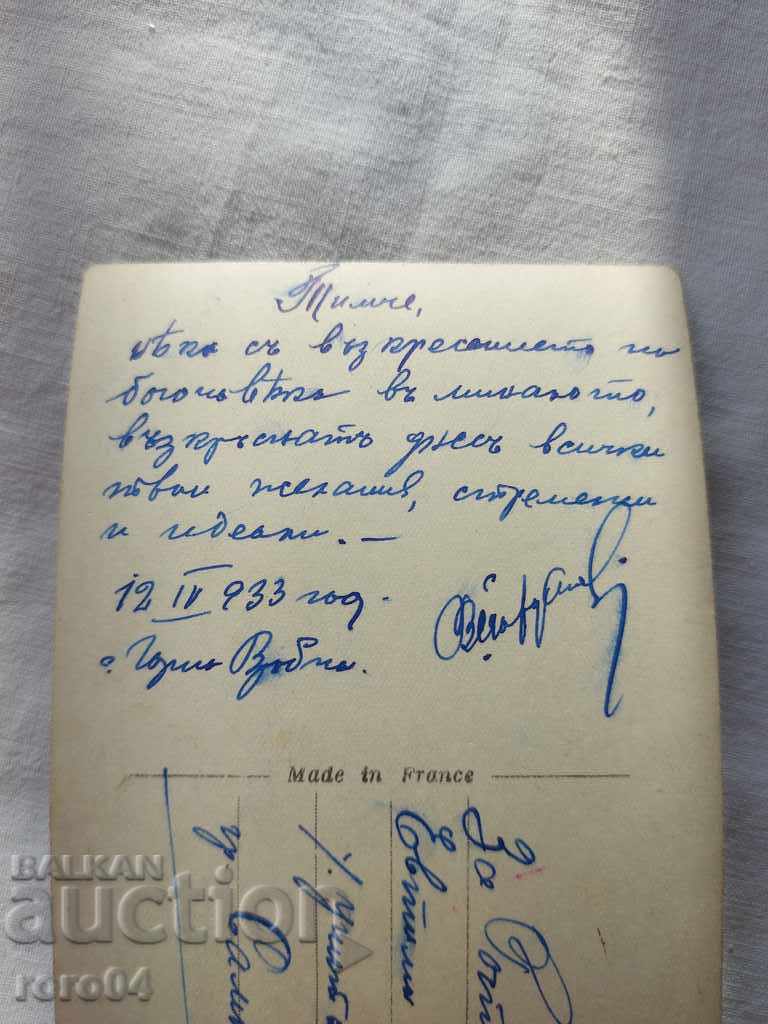 Тимче,
нѣка съ възкресението на
богочовѣка въ миналото,
възкръснатъ днесъ всички
твои желания, стремежи
и идеали. —
12 IV 933 год.
с. Горна Върбна.
Made in France
За
Евтим
гр.
BALKAN
auction
roro04